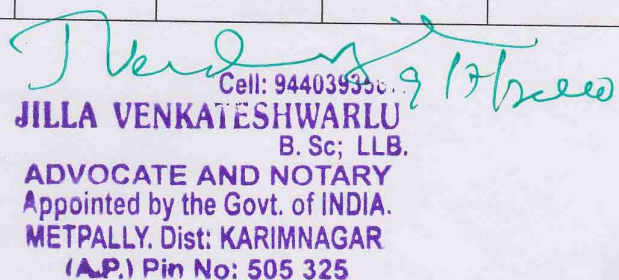 Cell: 944039350..
JILLA VENKATESHWARLU
B. Sc; LLB.
ADVOCATE AND NOTARY
Appointed by the Govt. of INDIA.
METPALLY. Dist: KARIMNAGAR
(A.P.) Pin No: 505 325